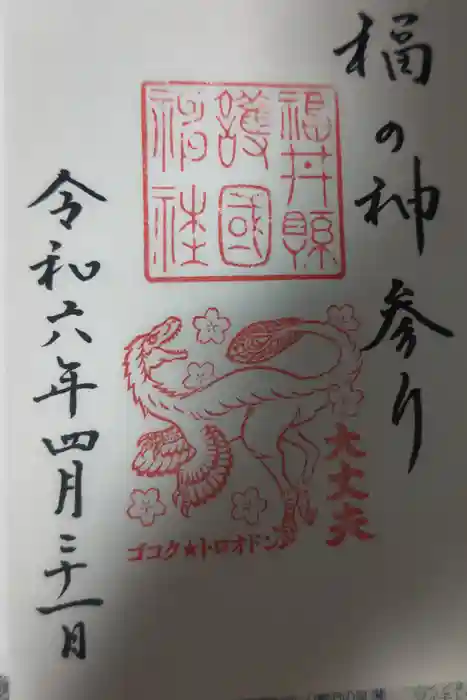 福の神参り
福井縣
護國
神社
大丈夫
ゴコク★トロオドン
令和六年四月二十一日